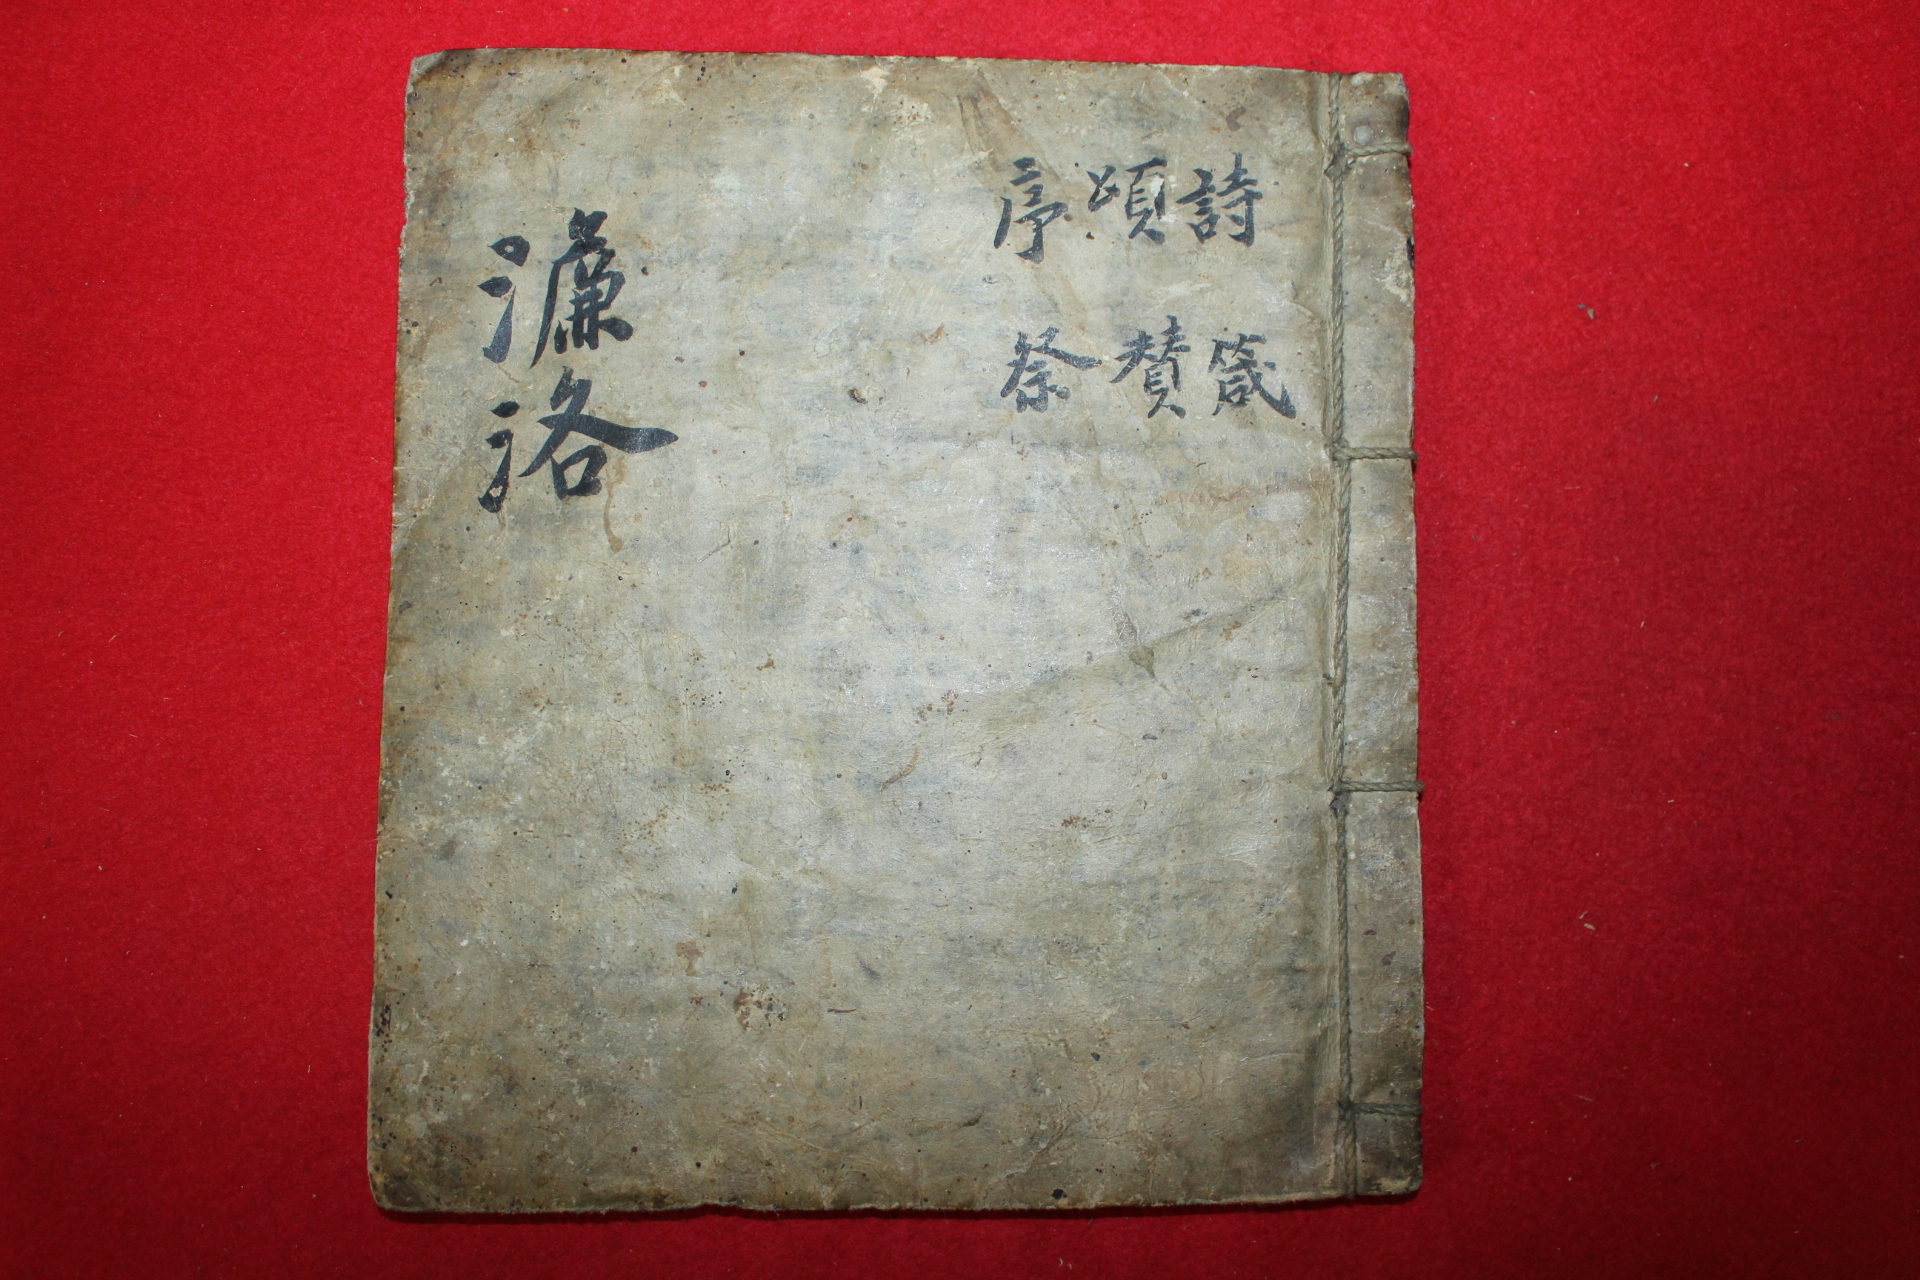 詩箴
頌賛
序祭
濂洛